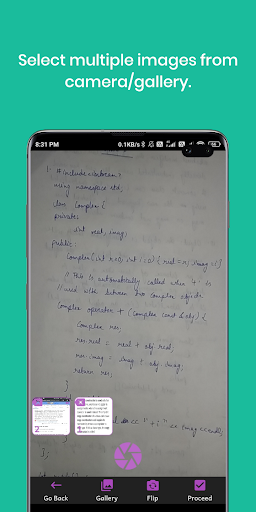 Select multiple images from
camera/gallery.
8:31 PM
0.1KB/s
1. #include<iostream>
using namespace std;
class Complex {
private:
int real, imag;
public:
Complex (int r=0, int i=0) { real=r; imag=i;}
// This is automatically called when '+' is
// used with between two complex objects
Complex operator + (Complex const &obj) {
Complex res;
res.real = real + obj.real;
res.imag = imag + obj.imag;
return res;
}
<< "+i" << imag <<
}
};
Go Back
Gallery
Flip
Proceed